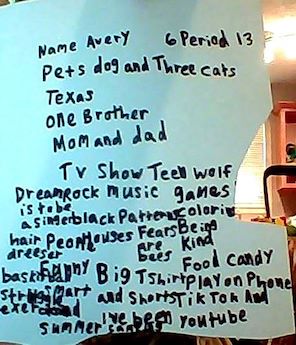 Name Avery 6 Period 13
Pets dog and Three cats
Texas
one Brother
Mom and dad
Tv Show Teen wolf
Dream Rock music games
is to be
a singer black Patterns coloring
hair Peon Houses Fears Being
dreeser are Kind
Funny bees Food Candy
basketball Big T Shirt Play on Phone
Smart and Shorts Tik Tok And
struggle
exer I've been Youtube
Summer